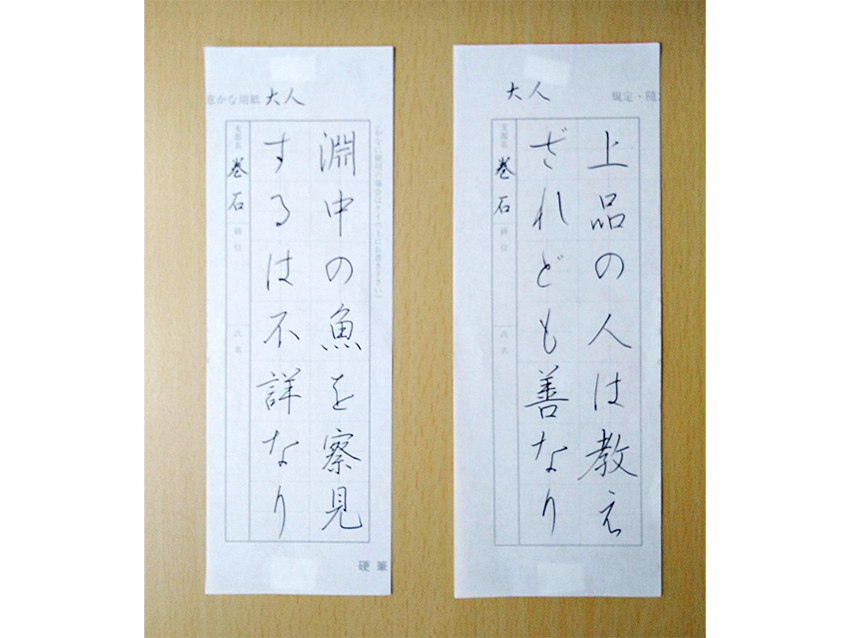 規定・随
大人
上品の人は教え
ざれども善なり
支部名 巻石
段位
氏名
意かな用紙 大人
淵中の魚を察見
するは不詳なり
支部名 巻石
段位
氏名
硬筆